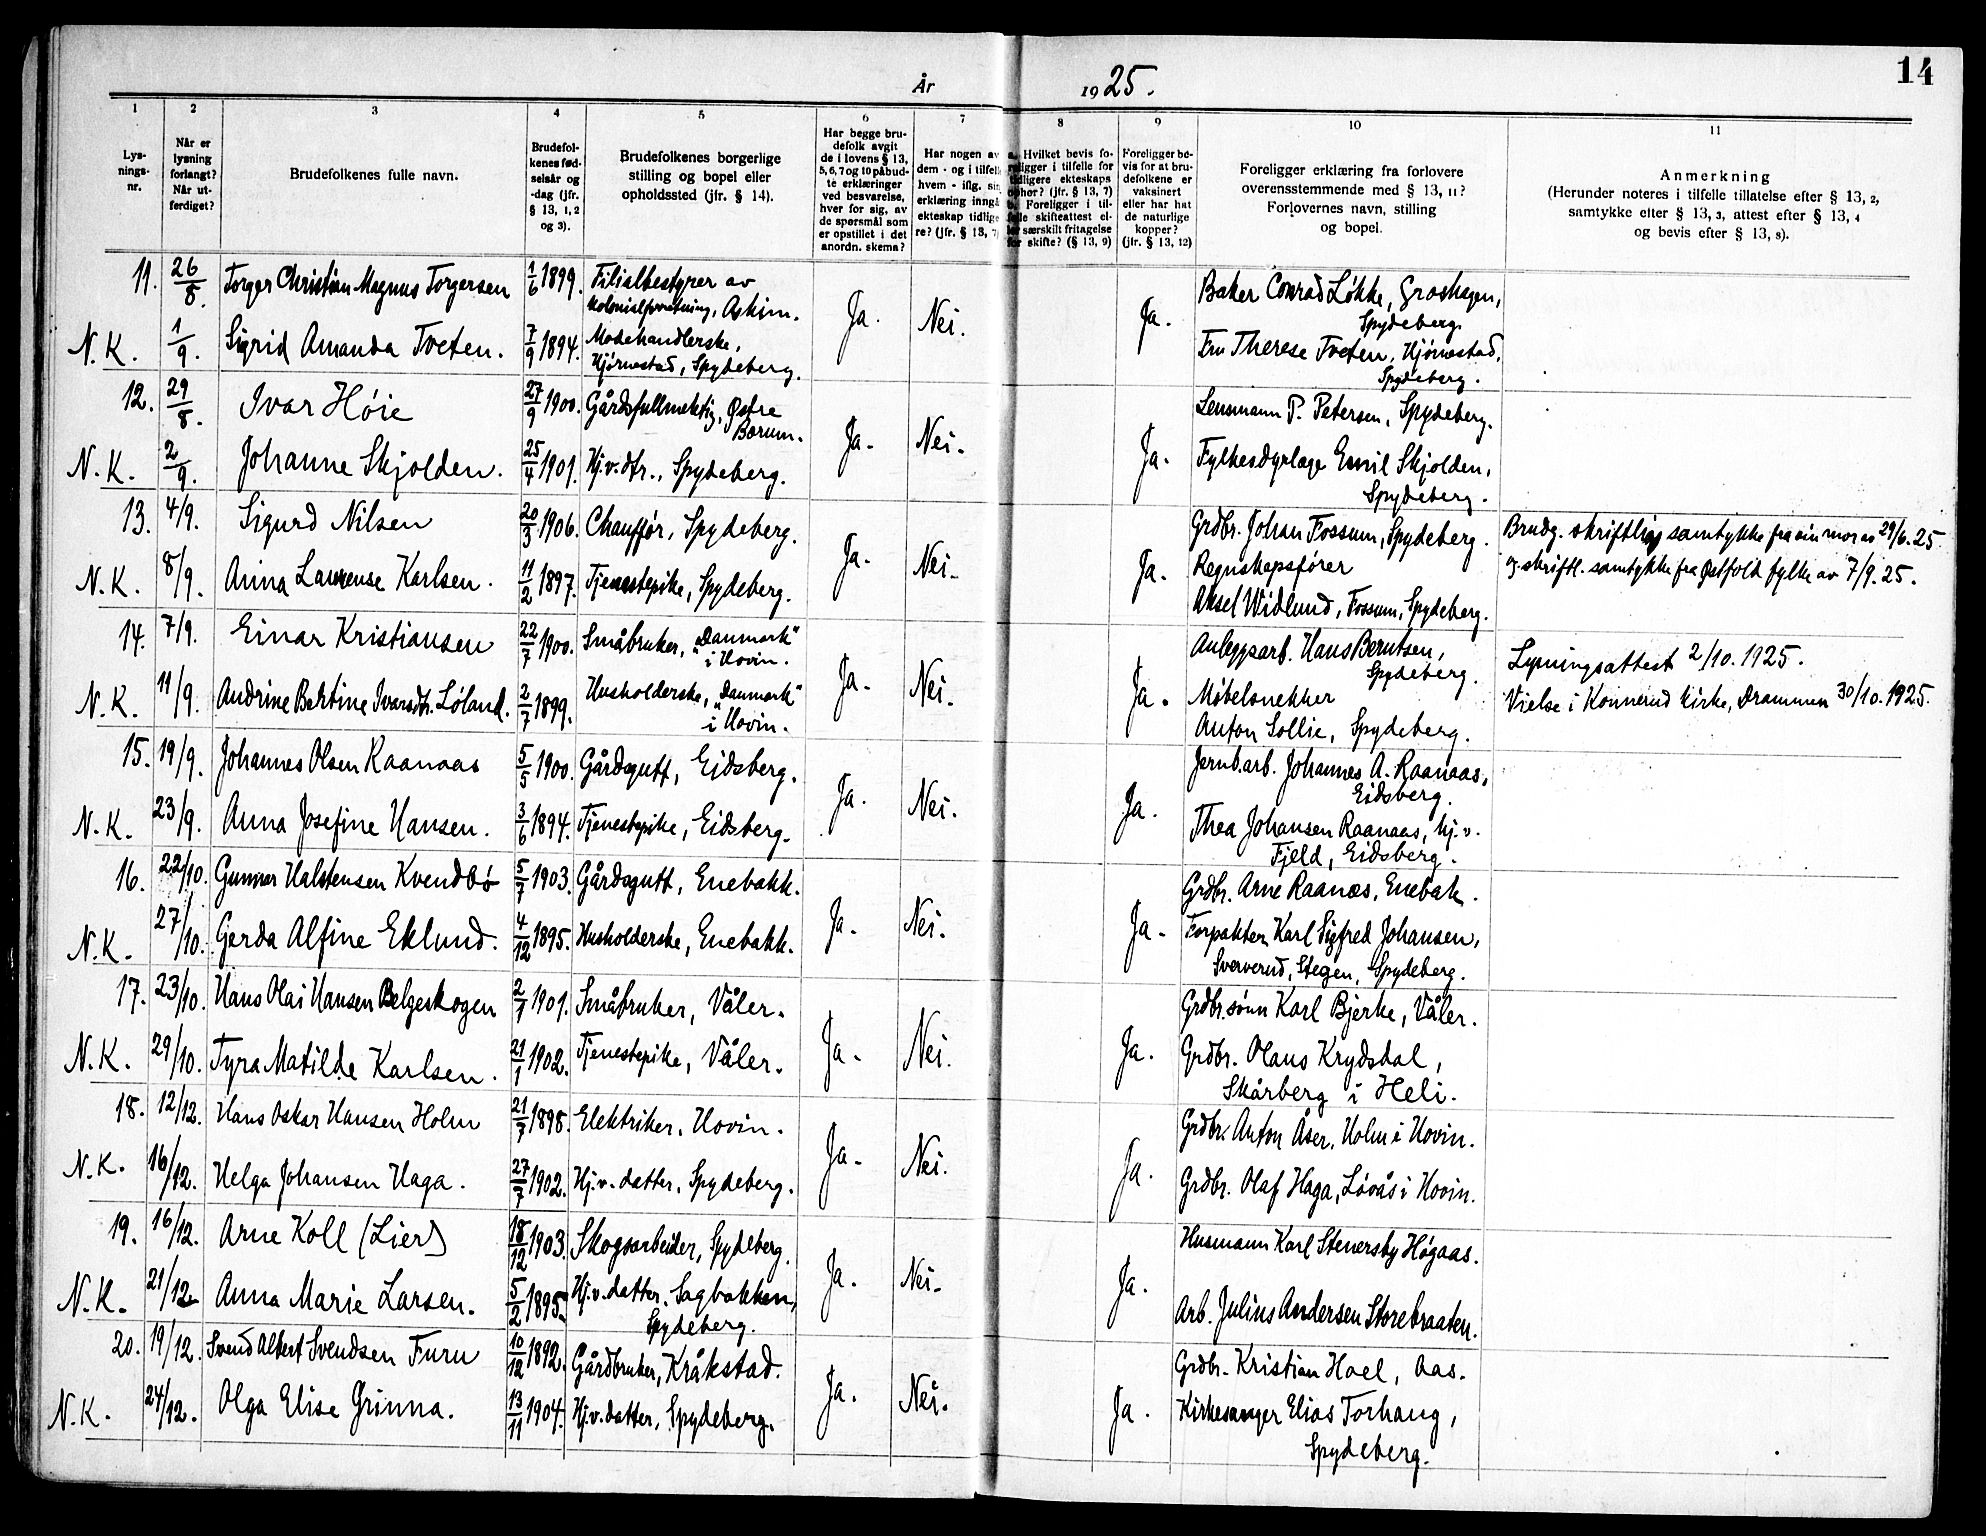 År 1925.
14
1 2 3 4 5 6 7 8 9 10 11
Lys-
nings-
nr.
Når er
lysning
forlangt?
Når ut-
ferdiget?
Brudefolkenes fulle navn.
Brudefol-
kenes fød-
selsår og
-dag (jfr.
§ 13, 1, 2
og 3).
Brudefolkenes borgerlige
stilling og bopel eller
opholdssted (jfr. § 14).
Har begge bru-
defolk avgit
de i lovens § 13,
5, 6, 7 og 10 påbud-
te erklæringer
ved besvarelse,
hver for sig, av
de spørsmål som
er opstillet i det
anordn. skema?
Har nogen av
dem - og i tilfelle
hvem - iflg. sin
erklæring inngå
ekteskap tidlige
re? (jfr. § 13, 7)
a. Hvilket bevis fo-
religger i tilfelle for
tidligere ekteskaps
ophør? (jfr. § 13, 7)
b. Foreligger i til-
felle skifteattest el-
ler særskilt fritagelse
for skifte? (§ 13, 9)
Foreligger be-
vis for at bru-
defolkene er
vaksinert
eller har hat
de naturlige
kopper?
(jfr. § 13, 12)
Foreligger erklæring fra forlovere
overensstemmende med § 13, 11?
Forlovernes navn, stilling
og bopel.
Anmerkning
(Herunder noteres i tilfelle tillatelse efter § 13, 2,
samtykke efter § 13, 3, attest efter § 13, 4
og bevis efter § 13, 8).
11. 26/8. Torger Christian Magnus Torgersen 1/6 1899. Filialbestyrer av
kolonialforretning, Askim. Ja. Nei. Ja. Baker Conrad Løkke, Groshagen,
Spydeberg.
N.K. 1/9. Sigrid Amanda Tveten. 7/9 1894. Motehandlerske,
Hjørnestad, Spydeberg. Fru Therese Tveten, Hjørnestad,
Spydeberg.
12. 29/8. Ivar Høie 27/9 1900. Gårdsfullmektig, Østre
Bærum. Ja. Nei. Ja. Lensmann P. Petersen, Spydeberg.
N.K. 2/9. Johanne Skjolden. 25/4 1901. Hj.v.dtr., Spydeberg. Fylkesdyrlæge Emil Skjolden,
Spydeberg.
13. 4/9. Sigurd Nilsen 20/3 1906. Chauffør, Spydeberg. Ja. Nei. Ja. Grdbr. Johan Fossum, Spydeberg. Brudg. skriftlig samtykke fra sin mor av 29/6.25
N.K. 8/9. Anna Laurense Karlsen. 11/2 1897. Tjenestepike, Spydeberg. Regnskapsfører
Aksel Widlund, Fossum, Spydeberg. og skriftl. samtykke fra Østfold fylke av 7/9.25.
14. 7/9. Einar Kristiansen 22/7 1900. Småbruker, "Danmark"
i Hovin. Ja. Nei. Ja. Anleggsarb. Hans Berntsen,
Spydeberg. Lysningsattest 2/10.1925.
N.K. 11/9. Andrine Bertine Ivarsdtr. Løland. 2/7 1899. Husholderske, "Danmark"
i Hovin. Møbelsnekker
Anton Sollie, Spydeberg. Vielse i Konnerud kirke, Drammen 30/10.1925.
15. 19/9. Johannes Olsen Raanaas 5/5 1900. Gårdsgutt, Eidsberg. Ja. Nei. Ja. Jernb.arb. Johannes A. Raanaas,
Eidsberg.
N.K. 23/9. Anna Josefine Hansen. 3/6 1894. Tjenestepike, Eidsberg. Thea Johansen Raanaas, hj.v.
Fjeld, Eidsberg.
16. 22/10. Gunnar Halstensen Kvendbø 5/7 1903. Gårdsgutt, Enebakk. Ja. Nei. Ja. Grdbr. Arne Raanæs, Enebak.
N.K. 27/10. Gerda Alfine Eklund. 4/12 1895. Husholderske, Enebakk. Forpakter Karl Sigfred Johansen,
Sververud, Stegen, Spydeberg.
17. 23/10. Hans Olai Hansen Belgeskogen 2/1 1901. Småbruker, Våler. Ja. Nei. Ja. Grdbr.sønn Karl Bjerke, Våler.
N.K. 29/10. Tyra Matilde Karlsen. 21/1 1902. Tjenestepike, Våler. Grdbr. Olaus Krydsdal,
Skårberg i Heli.
18. 12/12. Hans Oskar Hansen Holm 21/7 1898. Elektriker, Hovin. Ja. Nei. Ja. Grdbr. Anton Åser, Holm i Hovin.
N.K. 16/12. Helga Johansen Haga. 27/7 1902. Hj.v. datter, Spydeberg. Grdbr. Olaf Haga, Løvås i Hovin.
19. 16/12. Arne Koll (Lier) 18/12 1903. Skogsarbeider, Spydeberg. Ja. Nei. Ja. Husmann Karl Stenersby Høgaas.
N.K. 21/12 Anna Marie Larsen. 5/2 1895. Hj.v.datter, Sagbakken,
Spydeberg. Arb. Julius Andersen Storebraaten.
20. 19/12. Svend Albert Svendsen Furu 10/12 1892. Gårdbruker, Kråkstad. Ja. Nei. Ja. Grdbr. Kristian Hoel, Aas.
N.K. 24/12. Olga Elise Grinna. 13/11 1904. Hj.v.datter, Spydeberg. Kirkesanger Elias Torhaug,
Spydeberg.